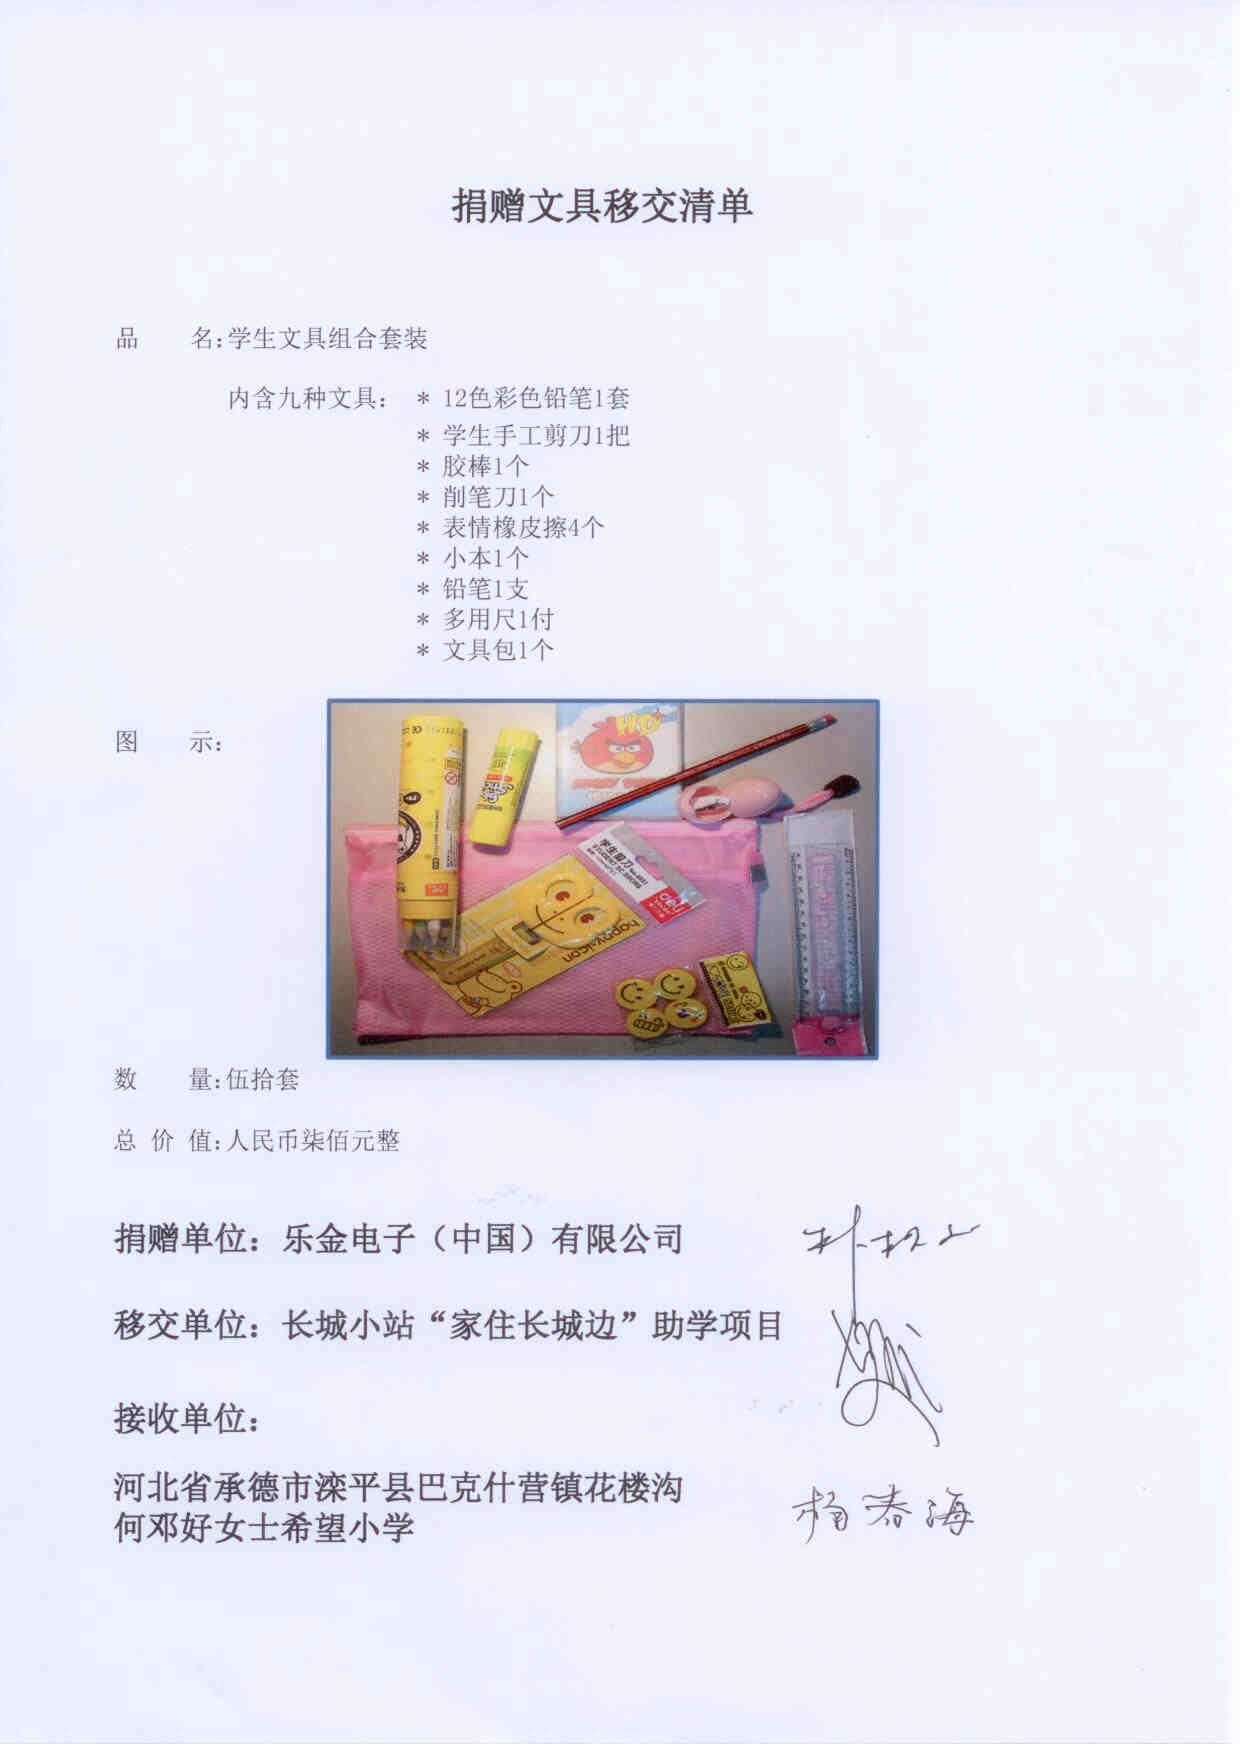 捐赠文具移交清单
品 名:学生文具组合套装
内含九种文具: * 12色彩色铅笔1套
* 学生手工剪刀1把
* 胶棒1个
* 削笔刀1个
* 表情橡皮擦4个
* 小本1个
* 铅笔1支
* 多用尺1付
* 文具包1个
图 示:
学生剪刀
deli
happy icon
数 量:伍拾套
总 价 值:人民币柒佰元整
捐赠单位：乐金电子（中国）有限公司
移交单位：长城小站“家住长城边”助学项目
接收单位：
河北省承德市滦平县巴克什营镇花楼沟
何邓好女士希望小学
杨春海